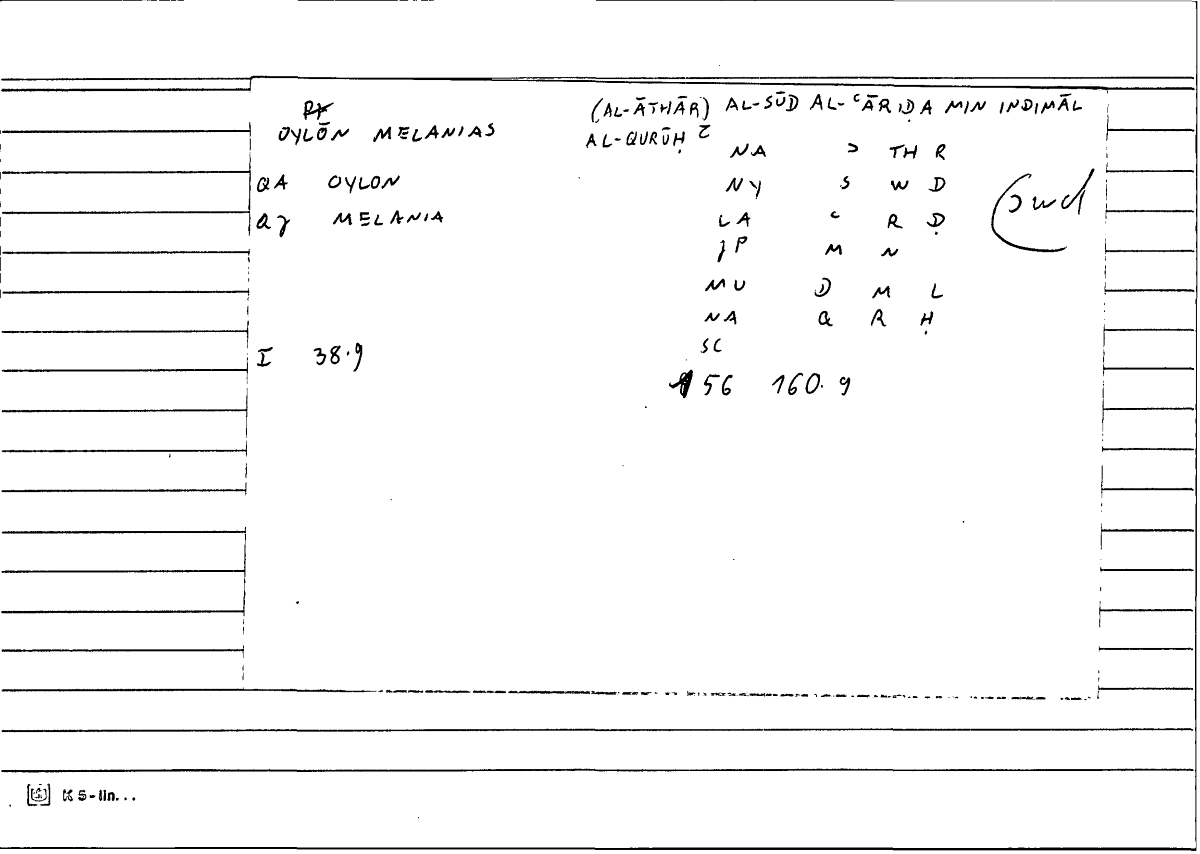 OYLŌN MELANIAS
(AL-ĀTHĀR) AL-SŪD AL-ʿĀRIḌA MIN INDIMĀL
AL-QURŪḤ
NA ʾ TH R
QA OYLON
NY S W D
swd
Qγ MELANIA
LA ʿ R Ḍ
γP M N
MU D M L
NA Q R Ḥ
SC
I 38.9
156 160.9
K 5-lin...